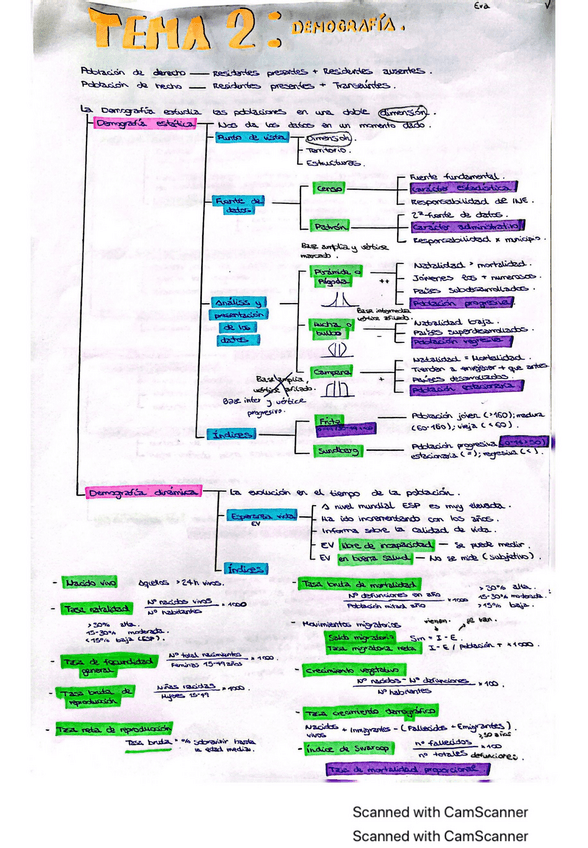 Eva
TEMA 2: DEMOGRAFÍA.
Población de derecho — Residentes presentes + Residentes ausentes.
Población de hecho — Residentes presentes + Transeúntes.
La Demografía estudia las poblaciones en una doble dimensión.
Demografía estática — Nos da los datos en un momento dado.
Punto de vista
Dimensión.
Territorio.
Estructuras.
Fuente de datos
Censo
Fuente fundamental.
Carácter estadística
Responsabilidad de INE.
Padrón
2ª fuente de datos.
Carácter administrativo
Responsabilidad x municipio.
Análisis y presentación de los datos
Base amplia y vértice marcado.
Pirámide o Pagoda
++
Natalidad > mortalidad.
Jóvenes los + numerosos.
Países subdesarrollados.
Población progresiva
Base intermedia vértice afilado.
Hucha o bulbo
-
Natalidad baja.
Países superdesarrollados.
Población regresiva
Campana
+
Natalidad = Mortalidad.
Tienden a envejecer + que antes
Países desarrollados
Población estacionaria
Base amplia, vértice afilado.
Base inter y vértice progresivo.
Índices
Friz
Población joven (>160); madura (60-160); vieja (<60).
Sundbarg
Población progresiva (0-14>50)
estacionaria (=); regresiva (<).
Demografía dinámica — La evolución en el tiempo de la población.
Esperanza vida EV
A nivel mundial ESP es muy elevada.
Ha ido incrementando con los años.
Informa sobre la calidad de vida.
EV libre de incapacidad — Se puede medir.
EV en buena salud — No se mide (subjetivo).
Índices
- Nacido vivo Aquellos >24h vivos.
- Tasa natalidad Nº nacidos vivos / Nº habitantes × 1000
>30% alta.
15-30% moderada.
<15% baja (ESP).
- Tasa de fecundidad general Nº total nacimientos / Féminas 15-49 años × 1000.
- Tasa bruta de reproducción Niñas nacidas / Mujeres 15-49 × 1000.
- Tasa neta de reproducción
Tasa bruta - % sobrevivir hasta la edad media.
- Tasa bruta de mortalidad
Nº defunciones en año / Población mitad año × 1000
>30% alta.
15-30% moderada.
>15% baja.
- Movimientos migratorios
vienen. se van.
Saldo migratorio Sm = I - E.
Tasa migratoria neta I - E / Población + × 1000.
- Crecimiento vegetativo
Nº nacidos - Nº defunciones / Nº habitantes × 100.
- Tasa crecimiento demográfico
Nacidos vivos + Inmigrantes - (Fallecidos - Emigrantes).
- Índice de Swaroop nº fallecidos >50 años / nº totales defunciones × 100
Tasa de mortalidad proporcional
Scanned with CamScanner
Scanned with CamScanner